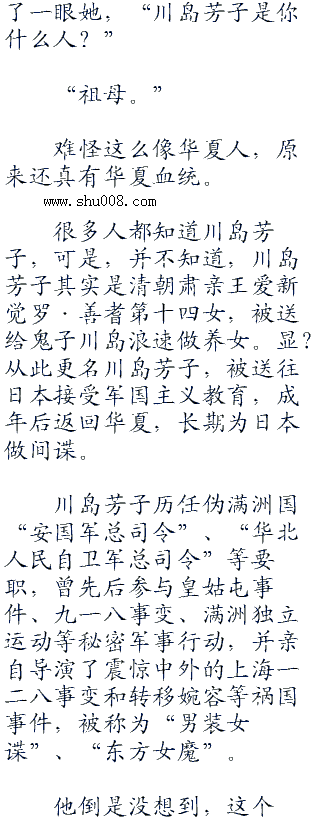 了一眼她，“川岛芳子是你
什么人？”
“祖母。”
难怪这么像华夏人，原
来还真有华夏血统。
www.shu008.com
很多人都知道川岛芳
子，可是，并不知道，川岛
芳子其实是清朝肃亲王爱新
觉罗·善耆第十四女，被送
给鬼子川岛浪速做养女。显？
从此更名川岛芳子，被送往
日本接受军国主义教育，成
年后返回华夏，长期为日本
做间谍。
川岛芳子历任伪满洲国
“安国军总司令”、“华北
人民自卫军总司令”等要
职，曾先后参与皇姑屯事
件、九一八事变、满洲独立
运动等秘密军事行动，并亲
自导演了震惊中外的上海一
二八事变和转移婉容等祸国
事件，被称为“男装女
谍”、“东方女魔”。
他倒是没想到，这个